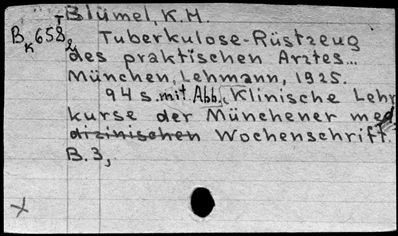 Blümel, K. M.
T
Bk 652 Tuberkulose-Rüstzeug
des praktischen Arztes...
München, Lehmann, 1925.
94 s. mit. Abb., Klinische Lehr
kurse der Münchener med
dizinischen Wochenschrift.
B. 3,